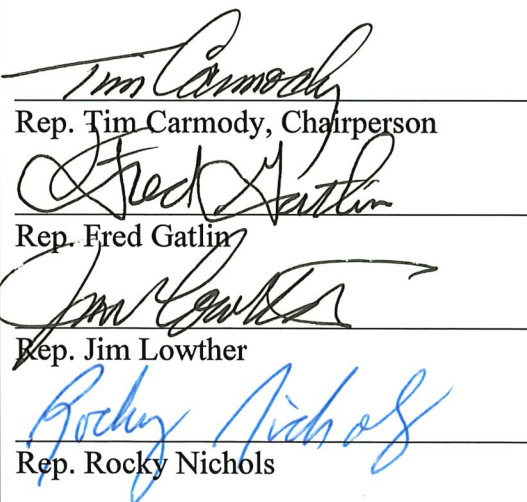 Tim Carmody
Rep. Tim Carmody, Chairperson
Fred Gatlin
Rep. Fred Gatlin
Jim Lowther
Rep. Jim Lowther
Rocky Nichols
Rep. Rocky Nichols